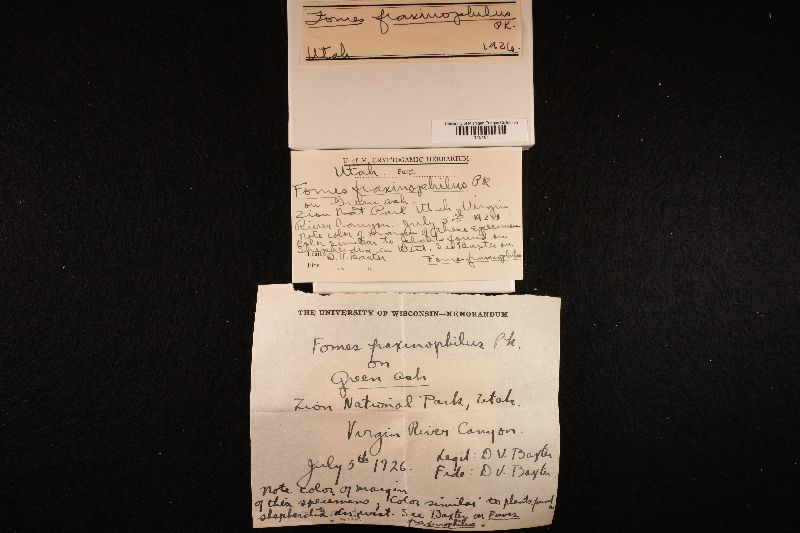 Fomes fraxinophilus
PK.
Utah 1926.
University of Michigan Fungus Collection
U. of M. CRYPTOGAMIC HERBARIUM
Utah. Fungi
Fomes fraxinophilus PK
on Green ash.
Zion Nat Park Utah, Virgin
River Canyon. July 5th 1926
Note color of margin of these specimens
Color similar to plants found on
Shepherdia in West. See Baxter on
D. V. Baxter Fomes fraxinophilus
THE UNIVERSITY OF WISCONSIN—MEMORANDUM
Fomes fraxinophilus Pk.
on
Green ash
Zion National Park, Utah.
Virgin River Canyon.
Legit: D V. Baxter
July 5th 1926. Fide: D V. Baxter
Note color of margin
of these specimens, Color similar to plants found on
shepherdia west. See Baxter on Fomes
fraxinophilus.